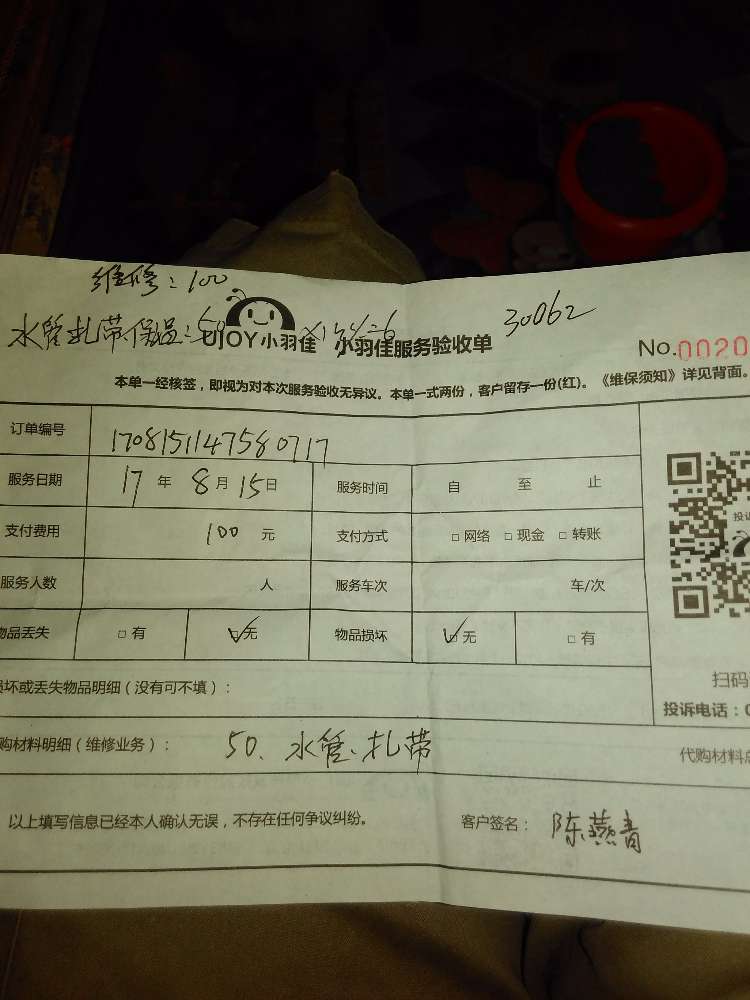 维修:100
水管扎带保温:50
30062
UJOY小羽佳 小羽佳服务验收单
No.0020
本单一经核签,即视为对本次服务验收无异议。本单一式两份,客户留存一份(红)。《维保须知》详见背面。
订单编号 1708151147580717
服务日期 17 年 8 月 15 日 服务时间 自 至 止
支付费用 100 元 支付方式 □网络 □现金 □转账
服务人数 人 服务车次 车/次
物品丢失 □有 ☑无 物品损坏 ☑无 □有
损坏或丢失物品明细(没有可不填):
扫码
投诉电话:0
购材料明细(维修业务): 50、水管、扎带 代购材料总
以上填写信息已经本人确认无误,不存在任何争议纠纷。 客户签名: 陈燕青